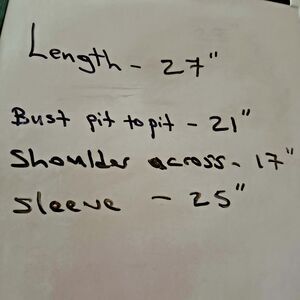 Length - 27"
Bust pit to pit - 21"
Shoulder across - 17"
Sleeve - 25"